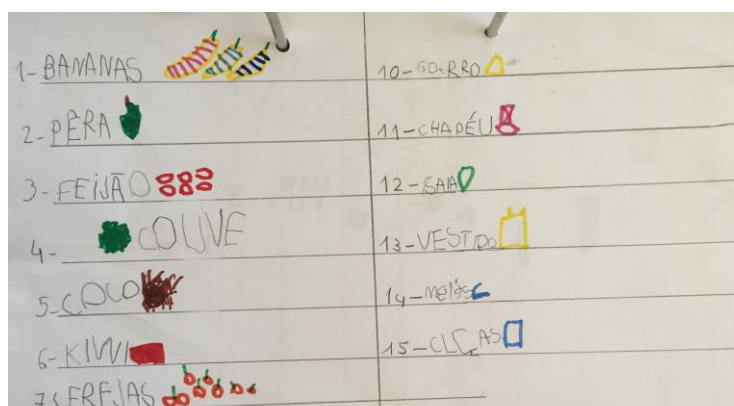 1-BANANAS
2-PÊRA
3-FEIJÃO
4-COUVE
5-COCO
6-KIWI
7 CEREJAS
10-GORRO
11-CHAPÉU
12-SAIA
13-VESTIDO
14-meiAS
15-CLÇAS